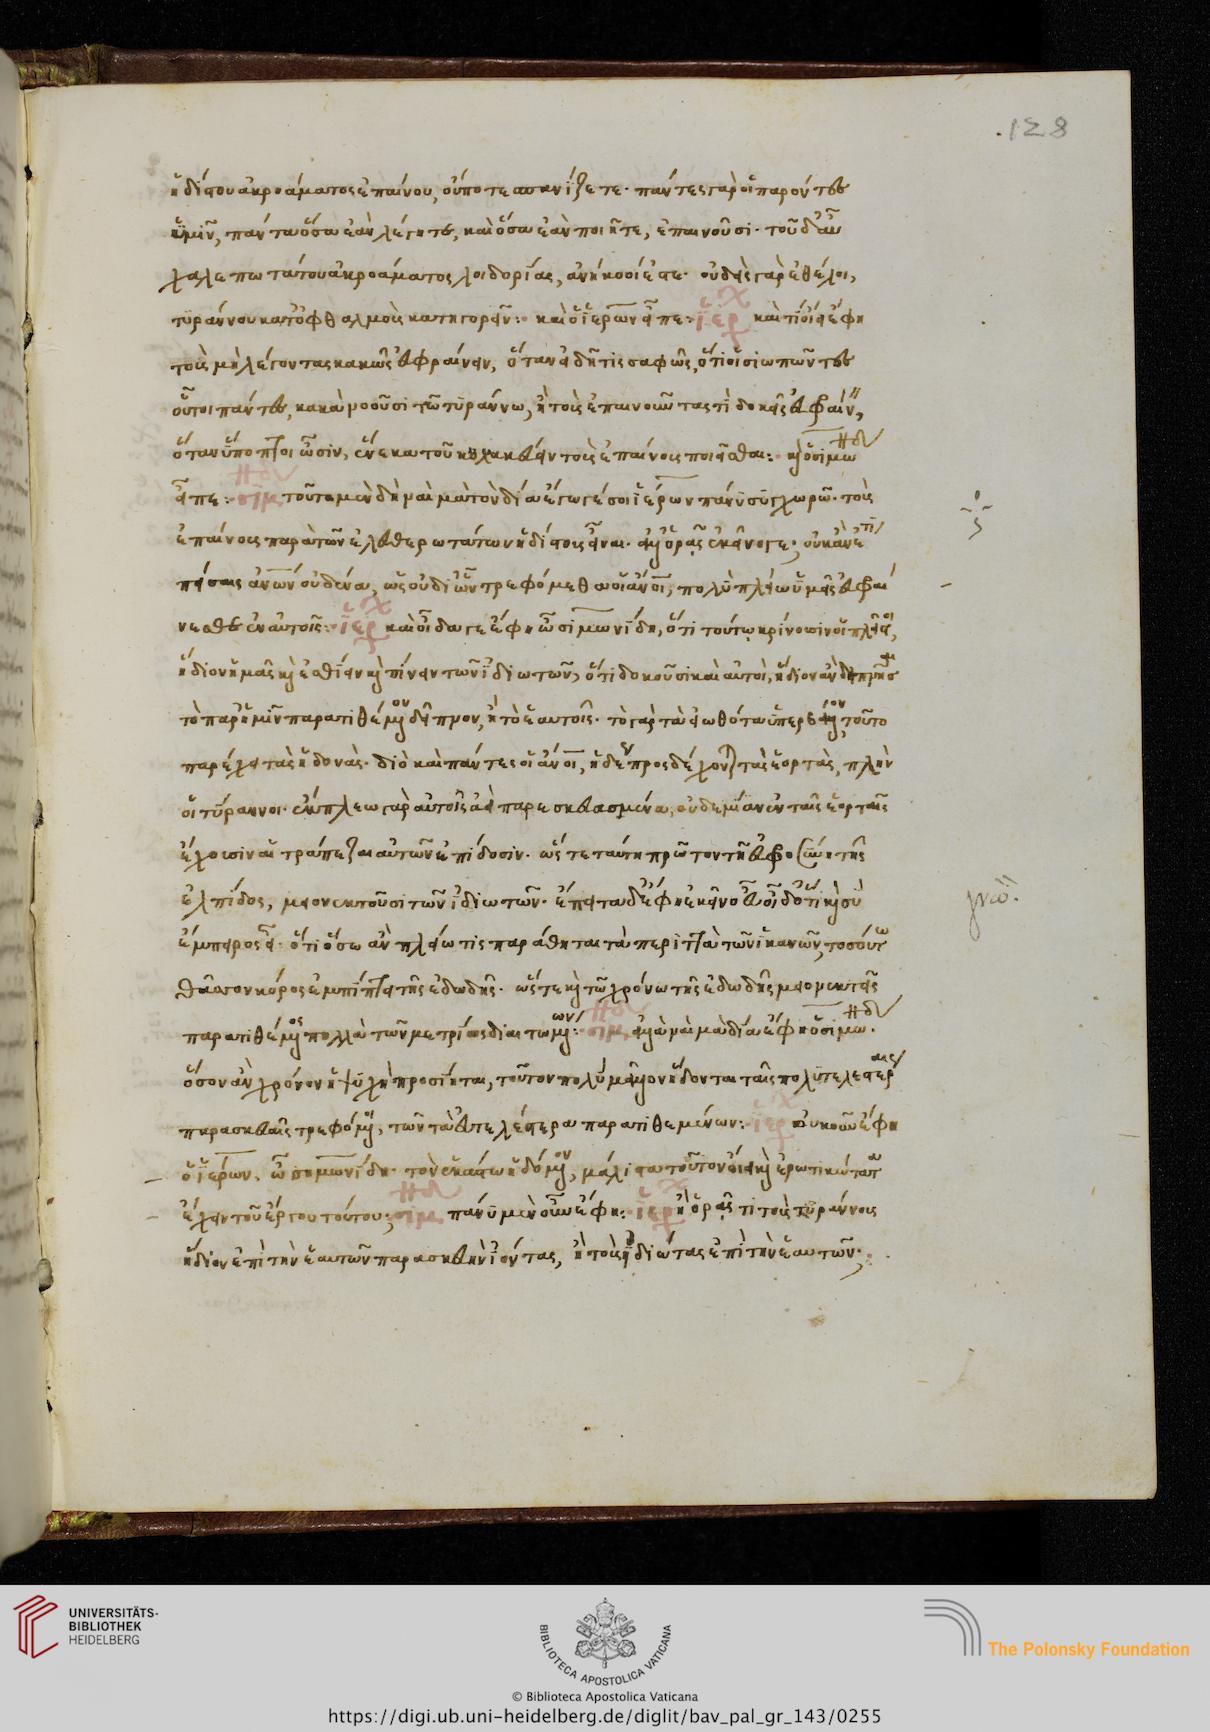 128
ἡδίστου ἀκροάματος ἐπαίνου, οὔποτε σπανίζετε· πάντες γὰρ οἱ παρόντες
ὑμῖν, πάντα ὅσα ἐὰν λέγητε, καὶ ὅσα ἐὰν ποιῆτε, ἐπαινοῦσι· τοῦ δ' αὖ
χαλεπωτάτου ἀκροάματος λοιδορίας, ἀνήκοοί ἐστε· οὐδεὶς γὰρ ἐθέλει,
τυράννου κατ' ὀφθαλμοὺς κατηγορεῖν: καὶ ὁ ἱέρων εἶπε: ἱέρ καὶ τί οἴει ἔφη
τοὺς μὴ λέγοντας κακῶς εὐφραίνειν, ὅταν εἰδῇ τις σαφῶς, ὅτι οἱ σιωπῶντες
οὗτοι πάντες, κακὰ νοοῦσι τῶ τυράννω, ἢ τοὺς ἐπαινοῦντας τί δοκεῖς εὐφραίν,
ὅταν ὕποπτοι ὦσιν, ἕνεκα τοῦ κολακεύειν τοὺς ἐπαίνους ποιεῖσθαι: κ ὁ σιμω
εἶπε: σιμ τοῦτο μὲν δὴ ναὶ μὰ τὸν δία ἔγωγέ σοι ἱέρων πάνυ συγχωρῶ· τοὺς
ἐπαίνους παρὰ τῶν ἐλευθερωτάτων ἡδίστους εἶναι· ἀλλ ὁρᾷς ἐκεῖνό γε; οὐκ ἂν ἔτι
πείσαις ἀνων οὐδένα, ὡς οὐ δι' ὧν τρεφόμεθα οἱ ἄνοι, πολὺ πλείω ὑμεῖς εὐφραί
νεσθε ἐν αὐτοῖς: ἱέρ καὶ οἶδά γε ἔφη ὦ σιμωνίδη, ὅτι τούτῳ κρίνουσιν οἱ πλεῖστοι,
ἥδιον ἡμᾶς κ ἐσθίειν κ πίνειν τῶν ἰδιωτῶν, ὅτι δοκοῦσι καὶ αὐτοὶ, ἥδιον ἂν δειπνῆσαι
τὸ παρ' ἡμῖν παρατιθέμενον δεῖπνον, ἢ τὸ ἑαυτοῖς· τὸ γὰρ τὰ εἰωθότα ὑπερβάλλον, τοῦτο
παρέχει τὰς ἡδονάς· διὸ καὶ πάντες οἱ ἄνοι, ἡδέως προσδέχονται τὰς ἑορτὰς, πλὴν
οἱ τύραννοι· ἔκπλεω γὰρ αὐτοῖς ἀεὶ παρεσκευασμέναι, οὐδεμίαν ἐν ταῖς ἑορταῖς
ἔχουσιν αἱ τράπεζαι αὐτῶν ἐπίδοσιν· ὥστε ταύτη πρῶτον τῆ εὐφροσύνη τῆς
ἐλπίδος, μειονεκτοῦσι τῶν ἰδιωτῶν· ἔπειτα δ' ἔφη ἐκεῖνο εὖ οἶδ' ὅτι κ σὺ
ἔμπειρος εἶ· ὅτι ὅσω ἂν πλείω τις παράθηται τὰ περιττὰ τῶν ἱκανῶν, τοσούτω
θᾶσσον κόρος ἐμπίπτει τῆς ἐδωδῆς· ὥστε κ τῶ χρόνω τῆς ἐδωδῆς μειονεκτεῖ
παρατιθέμενος πολλὰ τῶν μετρίως διαιτωμένων: σιμ, ἀλλὰ ναὶ μὰ δία ἔφη ὁ σιμω·
ὅσον ἂν χρόνον ἡ ψυχὴ προσίηται, τοῦτον πολὺ μᾶλλον ἥδονται ταῖς πολυτελεστέραις
παρασκευαῖς τρεφόμενοι, τῶν τὰ εὐτελέστερα παρατιθεμένων: ἱέρ οὐκοῦν ἔφη
ὁ ἱέρων, ὦ σιμωνίδη· τὸν ἑκάστω ἡδόμενον, μάλιστα τοῦτον οἴει κ ἐρωτικώτατα
ἔχειν τοῦ ἔργου τούτου; σιμ πάνυ μὲν οὖν ἔφη: ἱέρ ἢ ὁρᾷς τι τοὺς τυράννους
ἥδιον ἐπὶ τὴν ἑαυτῶν παρασκευὴν ἰόντας, ἢ τοὺς ἰδιώτας ἐπὶ τὴν ἑαυτῶν;
UNIVERSITÄTS-
BIBLIOTHEK
HEIDELBERG
BIBLIOTECA APOSTOLICA VATICANA
The Polonsky Foundation
© Biblioteca Apostolica Vaticana
https://digi.ub.uni-heidelberg.de/diglit/bav_pal_gr_143/0255